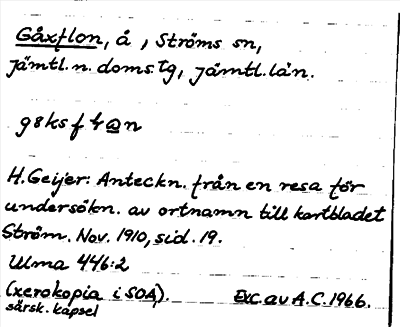 Gåxflon, å, Ströms sn,
Jämtl. n. doms.tg, Jämtl. län.
H. Geijer: Anteckn. från en resa för
undersökn. av ortnamn till kartbladet
Ström. Nov. 1910, sid. 19.
Ulma 446:2
(xerokopia i SOA). Exc. av A.C. 1966.
särsk. kapsel